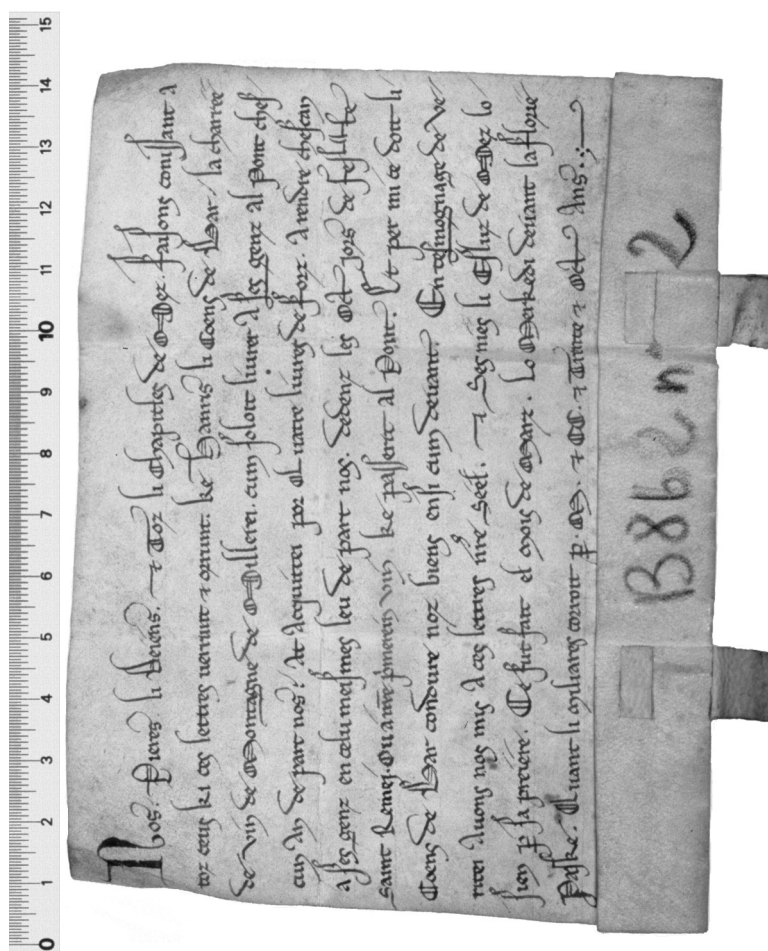 Nos. Pieres li Princiers. ⁊ Toz li Chapitles de Mez. faisons conissant a
toz ceus ki ces lettres verrunt ⁊ orrunt. ke Hanris li Coens de Bar. la charree
de vin de Montagne de Milleri. cum soloit livrer a ses genz al Pont chesc
cun an de part nos. At Acquittei por Quatre livres de fors. A rendre chescun an
a ses genz en celu mesmes leu de part nos. dedenz les Oct jors de feste
saint Remei. Ou anre premereins vins ke passerit al Pont. Et per mi ce doit li
Coens de Bar conduire noz biens ensi cum devant. En tesmognage de ve
ritei Avons nos mis a ces lettres nre Seel. ⁊ Ses mes li Esliz de Mez lo
sien p sa preiere. Ce fut fait el mois de Marz. Lo Merkedi devant la florie
Paske. Quant li miliares corroit p. M. ⁊ CC. ⁊ Trente ⁊ Oct Ans.
B 862 n° 2
0 1 2 3 4 5 6 7 8 9 10 11 12 13 14 15